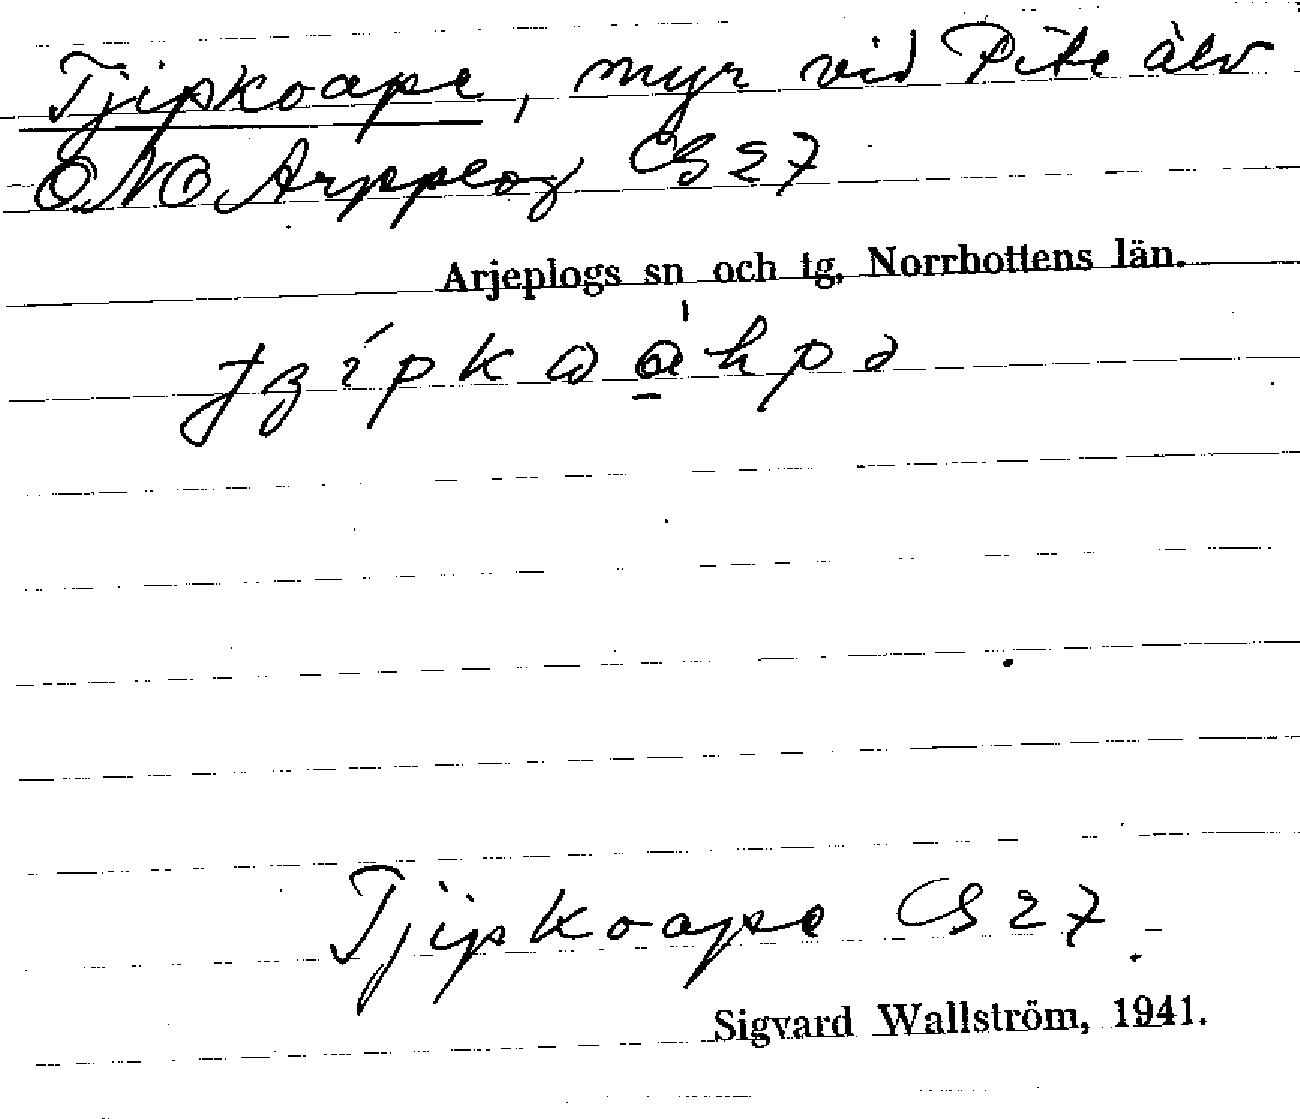 Tjipkoape, myr vid Pite älv
ONO Arppeog CS 27
Arjeplogs sn och tg, Norrbottens län.
Tjipkoape CS 27.
Sigvard Wallström, 1941.